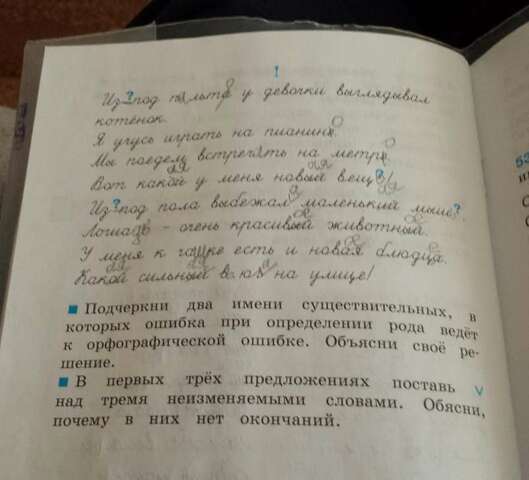 Из?под пальто у девочки выглядывал
котёнок.
Я учусь играть на пианино.
Мы поедем встречать на метро.
Вот какой у меня новый вещ?!
Из?под пола выбежал маленький мыш?.
Лошадь - очень красивый животный.
У меня к чашке есть и новая блюдца.
Какой сильный на улице!
Подчеркни два имени существительных, в
которых ошибка при определении рода ведёт
к орфографической ошибке. Объясни своё ре-
шение.
В первых трёх предложениях поставь v
над тремя неизменяемыми словами. Обясни,
почему в них нет окончаний.